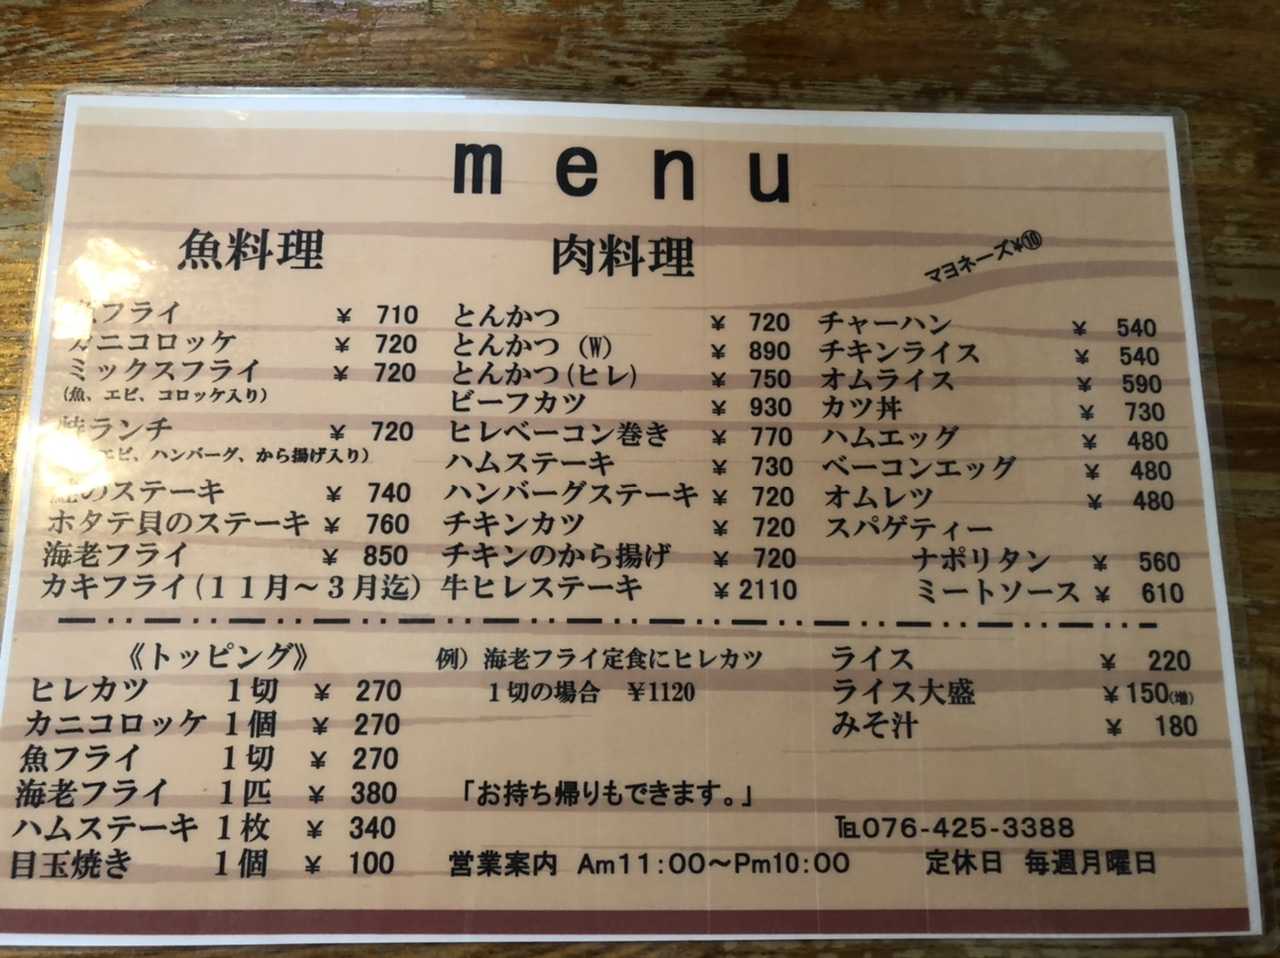 menu
魚料理
フライ ¥ 710
カニコロッケ ¥ 720
ミックスフライ ¥ 720
(魚、エビ、コロッケ入り)
ランチ ¥ 720
エビ、ハンバーグ、から揚げ入り)
のステーキ ¥ 740
ホタテ貝のステーキ ¥ 760
海老フライ ¥ 850
カキフライ(11月～3月迄)
肉料理
とんかつ ¥ 720
とんかつ (W) ¥ 890
とんかつ(ヒレ) ¥ 750
ビーフカツ ¥ 930
ヒレベーコン巻き ¥ 770
ハムステーキ ¥ 730
ハンバーグステーキ ¥ 720
チキンカツ ¥ 720
チキンのから揚げ ¥ 720
牛ヒレステーキ ¥ 2110
マヨネーズ¥⑩
チャーハン ¥ 540
チキンライス ¥ 540
オムライス ¥ 590
カツ丼 ¥ 730
ハムエッグ ¥ 480
ベーコンエッグ ¥ 480
オムレツ ¥ 480
スパゲティー
ナポリタン ¥ 560
ミートソース ¥ 610
《トッピング》
ヒレカツ 1切 ¥ 270
カニコロッケ 1個 ¥ 270
魚フライ 1切 ¥ 270
海老フライ 1匹 ¥ 380
ハムステーキ 1枚 ¥ 340
目玉焼き 1個 ¥ 100
例) 海老フライ定食にヒレカツ
1切の場合 ¥1120
「お持ち帰りもできます。」
ライス ¥ 220
ライス大盛 ¥150(増)
みそ汁 ¥ 180
℡076-425-3388
営業案内 Am11:00～Pm10:00 定休日 毎週月曜日